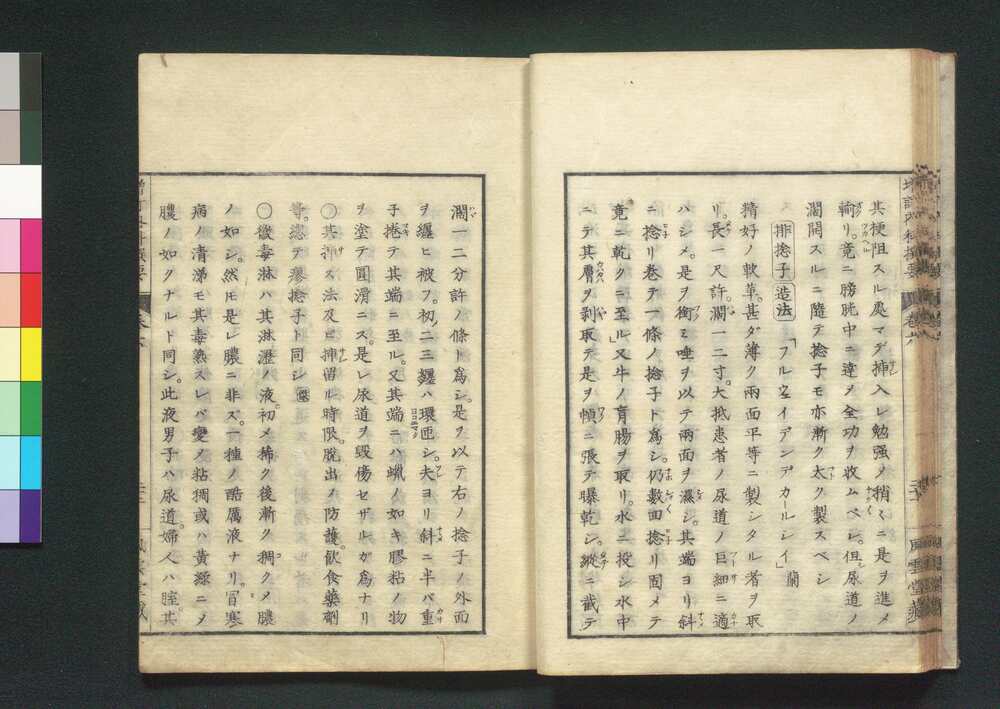 其梗阻スル處マデ挿入レ勉强メ稍々ニ是ヲ進メ
輸リ。竟ニ膀胱中ニ達メ全功ヲ收ムベシ。但尿道ノ
濶開スルニ隨テ捻子モ亦漸ク太ク製スベシ
排捻子造法「フルヱイデンデカールシイ」蘭
精好ノ軟革。甚ダ薄ク兩面平等ニ製シタル者ヲ取
リ。長一尺許。濶一二寸。大抵患者ノ尿道ノ巨細ニ適
ハシメ。是ヲ銜ミ唾ヲ以テ兩面ヲ濕シ。其端ヨリ斜
ニ捻リ巻テ一條ノ捻子ト爲シ。仍數面捻リ固メテ
竟ニ乾クニ至ル」又牛ノ盲腸ヲ取リ。水ニ投シ水中
ニテ其膚ヲ剥取テ是ヲ幀ニ張テ曝乾シ。縱ニ截テ
濶一二分許ノ條ト爲シ。是ヲ以テ右ノ捻子ノ外面
ヲ纏ヒ被フ。初ノ二三纏ハ環匝シ。夫ヨリ斜ニ半バ重
子捲テ其端ニ至ル。又其端ニハ蠟ノ如キ膠粘ノ物
ヲ塗テ圓滑ニス。是レ尿道ヲ毀傷セザルガ爲ナリ
〇其挿ス法及ヒ挿留ル時限。脱出ノ防護。飲食藥劑
等。悉テ捻子ト同シ
〇黴毒淋ハ其淋瀝ノ液。初メ稀ク後漸ク稠クメ膿
ノ如シ。然モ是レ膿ニ非ス。一種ノ酷厲液ナリ。冒寒
病ノ清涕モ其毒熟スレバ變メ粘稠或ハ黄緑ニメ
膿ノ如クナルト同シ。此液男子ハ尿道。婦人ハ腟其